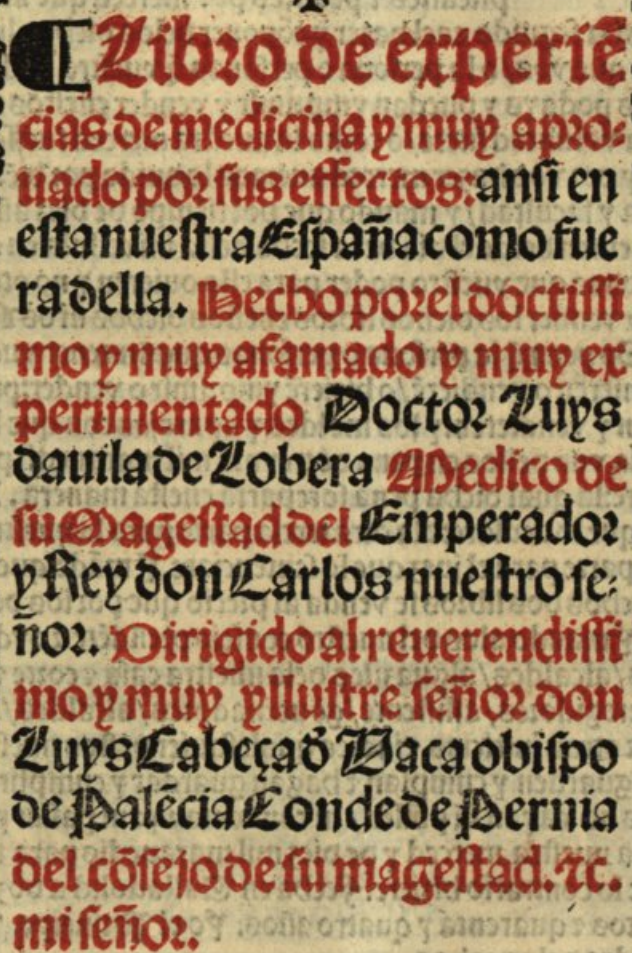 ¶ Libro de experiẽ
cias de medicina y muy apro-
uado por sus effectos: ansi en
esta nuestra España como fue
ra della. Hecho por el doctissi
mo y muy afamado y muy ex
perimentado Doctor Luys
dauila de Lobera Medico de
su Magestad del Emperador
y Rey don Carlos nuestro se-
ñor. Dirigido al reuerendissi
mo y muy yllustre señor don
Luys Cabeça d̓ Vaca obispo
de Palẽcia Conde de Pernia
del cõsejo de su magestad. ⁊c.
mi señor.